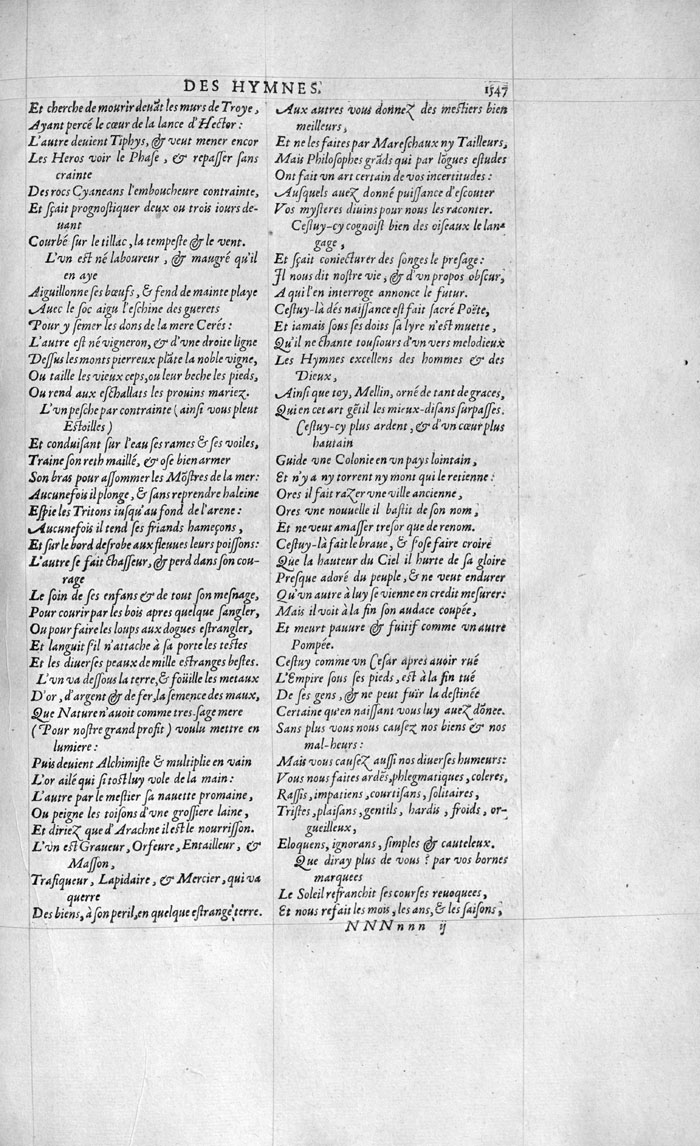 DES HYMNES.
1547
Et cherche de mourir deuãt les murs de Troye,
Ayant percé le cœur de la lance d'Hector:
L'autre deuient Tiphys, & veut mener encor
Les Heros voir le Phase, & repasser sans
crainte
Des rocs Cyaneans l'emboucheure contrainte,
Et sçait prognostiquer deux ou trois iours de-
uant
Courbé sur le tillac, la tempeste & le vent.
L'vn est né laboureur, & maugré qu'il
en aye
Aiguillonne ses bœufs, & fend de mainte playe
Auec le soc aigu l'eschine des guerets
Pour y semer les dons de la mere Cerés:
L'autre est né vigneron, & d'vne droite ligne
Dessus les monts pierreux plãte la noble vigne,
Ou taille les vieux ceps, ou leur beche les pieds,
Ou rend aux eschallats les prouins mariez.
L'vn pesche par contrainte (ainsi vous pleut
Estoilles)
Et conduisant sur l'eau ses rames & ses voiles,
Traine son reth maillé, & ose bien armer
Son bras pour assommer les Mõstres de la mer:
Aucunefois il plonge, & sans reprendre haleine
Espie les Tritons iusqu'au fond de l'arene:
Aucunefois il tend ses friands hameçons,
Et sur le bord desrobe aux fleuues leurs poissons:
L'autre se fait Chasseur, & perd dans son cou-
rage
Le soin de ses enfans & de tout son mesnage,
Pour courir par les bois apres quelque sangler,
Ou pour faire les loups aux dogues estrangler,
Et languit s'il n'attache à sa porte les testes
Et les diuerses peaux de mille estranges bestes.
L'vn va dessous la terre, & foüille les metaux
D'or, d'argent & de fer, la semence des maux,
Que Nature n'auoit comme tres-sage mere
(Pour nostre grand profit) voulu mettre en
lumiere:
Puis deuient Alchimiste & multiplie en vain
L'or ailé qui si tost luy vole de la main:
L'autre par le mestier sa nauette promaine,
Ou peigne les toisons d'vne grossiere laine,
Et diriez que d'Arachne il est le nourrisson.
L'vn est Graueur, Orfeure, Entailleur, &
Masson,
Trafiqueur, Lapidaire, & Mercier, qui va
querre
Des biens, à son peril, en quelque estrange terre.
Aux autres vous donnez des mestiers bien
meilleurs,
Et ne les faites par Mareschaux ny Tailleurs,
Mais Philosophes grãds qui par lõgues estudes
Ont fait vn art certain de vos incertitudes:
Ausquels auez donné puissance d'escouter
Vos mysteres diuins pour nous les raconter.
Cestuy-cy cognoist bien des oiseaux le lan-
gage,
Et sçait coniecturer des songes le presage:
Il nous dit nostre vie, & d'vn propos obscur,
A qui l'en interroge annonce le futur.
Cestuy-là dés naissance est fait sacré Poëte,
Et iamais sous ses doits sa lyre n'est muette,
Qu'il ne chante tousiours d'vn vers melodieux
Les Hymnes excellens des hommes & des
Dieux,
Ainsi que toy, Mellin, orné de tant de graces,
Qui en cet art gẽtil les mieux-disans surpasses.
Cestuy-cy plus ardent, & d'vn cœur plus
hautain
Guide vne Colonie en vn pays lointain,
Et n'y a ny torrent ny mont qui le retienne:
Ores il fait razer vne ville ancienne,
Ores vne nouuelle il bastit de son nom,
Et ne veut amasser tresor que de renom.
Cestuy-là fait le braue, & s'ose faire croire
Que la hauteur du Ciel il hurte de sa gloire
Presque adoré du peuple, & ne veut endurer
Qu'vn autre à luy se vienne en credit mesurer:
Mais il voit à la fin son audace coupée,
Et meurt pauure & fuitif comme vn autre
Pompée.
Cestuy comme vn Cesar apres auoir rué
L'Empire sous ses pieds, est à la fin tué
De ses gens, & ne peut fuïr la destinée
Certaine qu'en naissant vous luy auez dõnee.
Sans plus vous nous causez nos biens & nos
mal-heurs:
Mais vous causez aussi nos diuerses humeurs:
Vous nous faites ardẽs, phlegmatiques, coleres,
Rassis, impatiens, courtisans, solitaires,
Tristes, plaisans, gentils, hardis, froids, or-
gueilleux,
Eloquens, ignorans, simples & cauteleux.
Que diray plus de vous? par vos bornes
marquees
Le Soleil refranchit ses courses reuoquees,
Et nous refait les mois, les ans, & les saisons,
NNNnnn ij